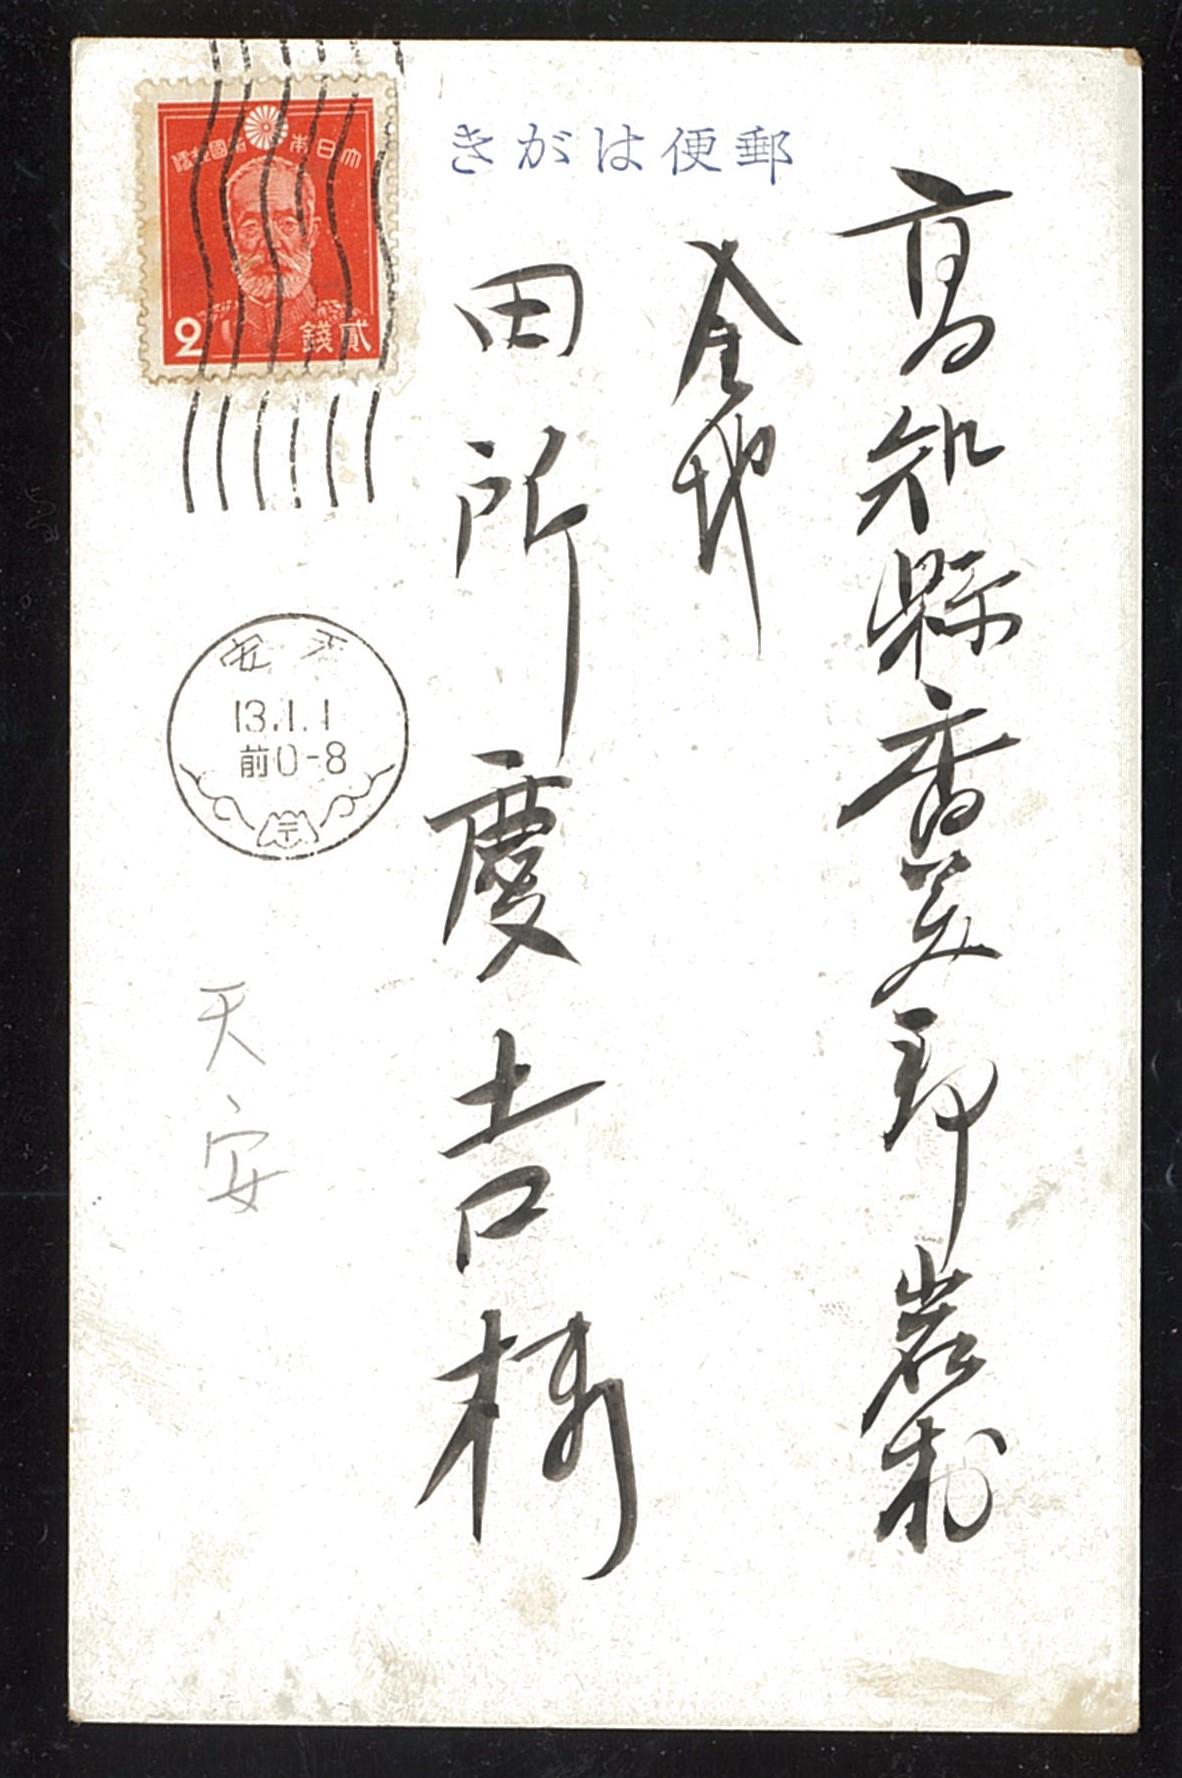 郵便はがき
大日本帝國郵便
2 貳錢
高知縣香美郡岩村
金地
田所慶吉様
天安
13.1.1
前0-8
天安